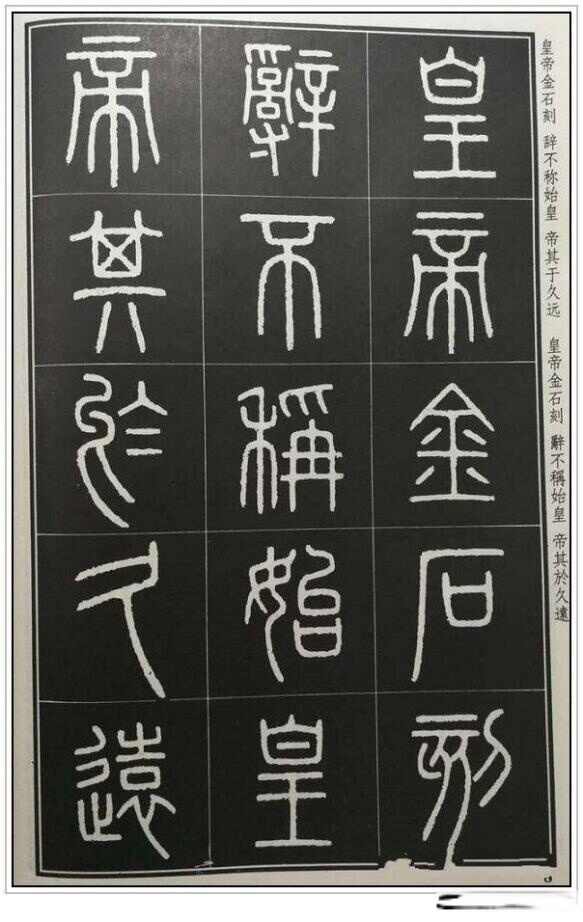 皇帝金石刻
辞不称始皇
帝其于久远
皇帝金石刻
辭不稱始皇
帝其於久遠
皇帝金石刻
辭不稱始皇
帝其於久遠